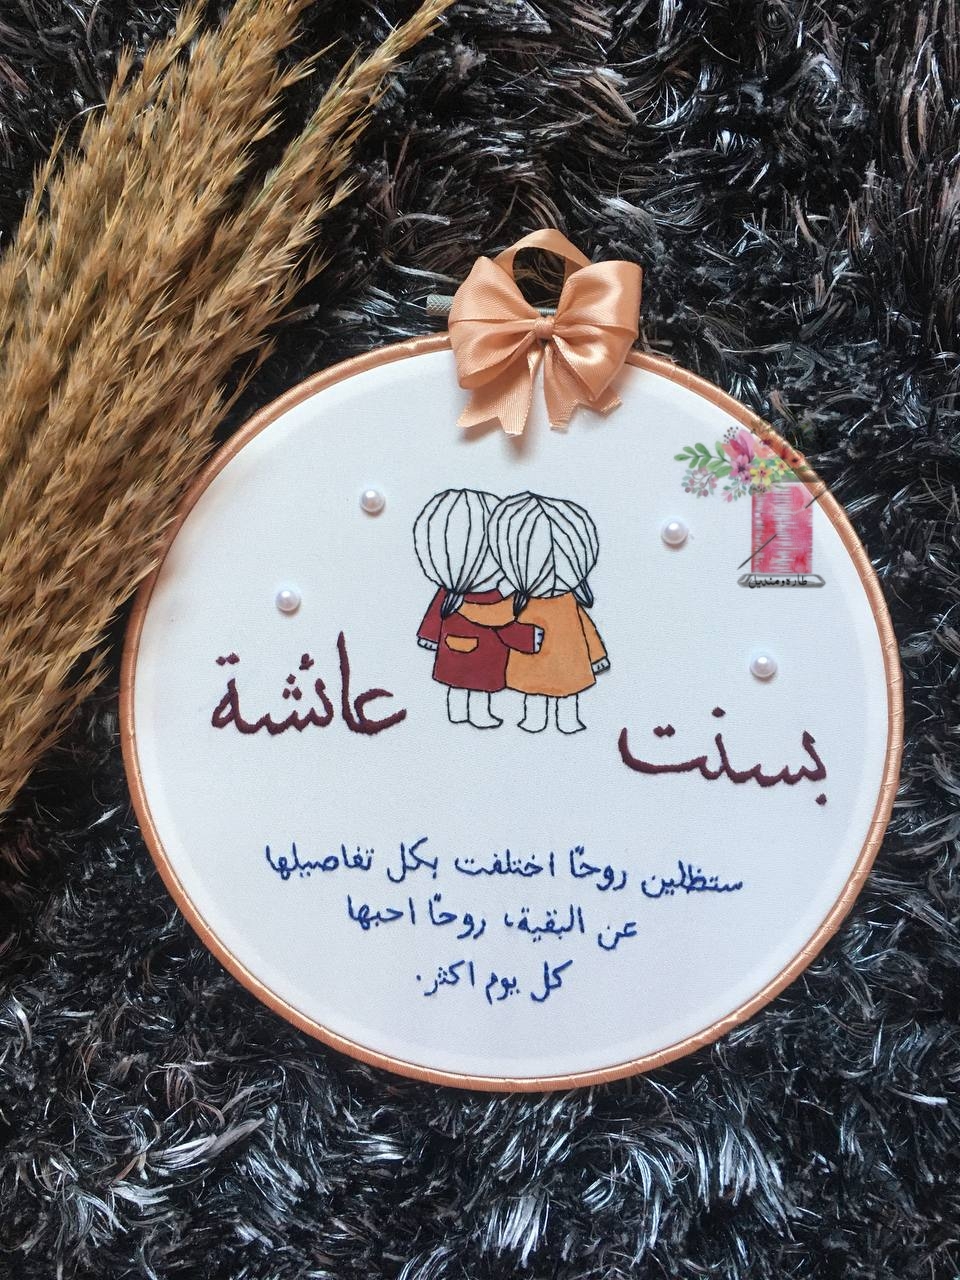 بسنت
عائشة
ستظلين روحًا اختلفت بكل تفاصيلها
عن البقية، روحًا احبها
كل يوم اكثر.
طارة ومنديل